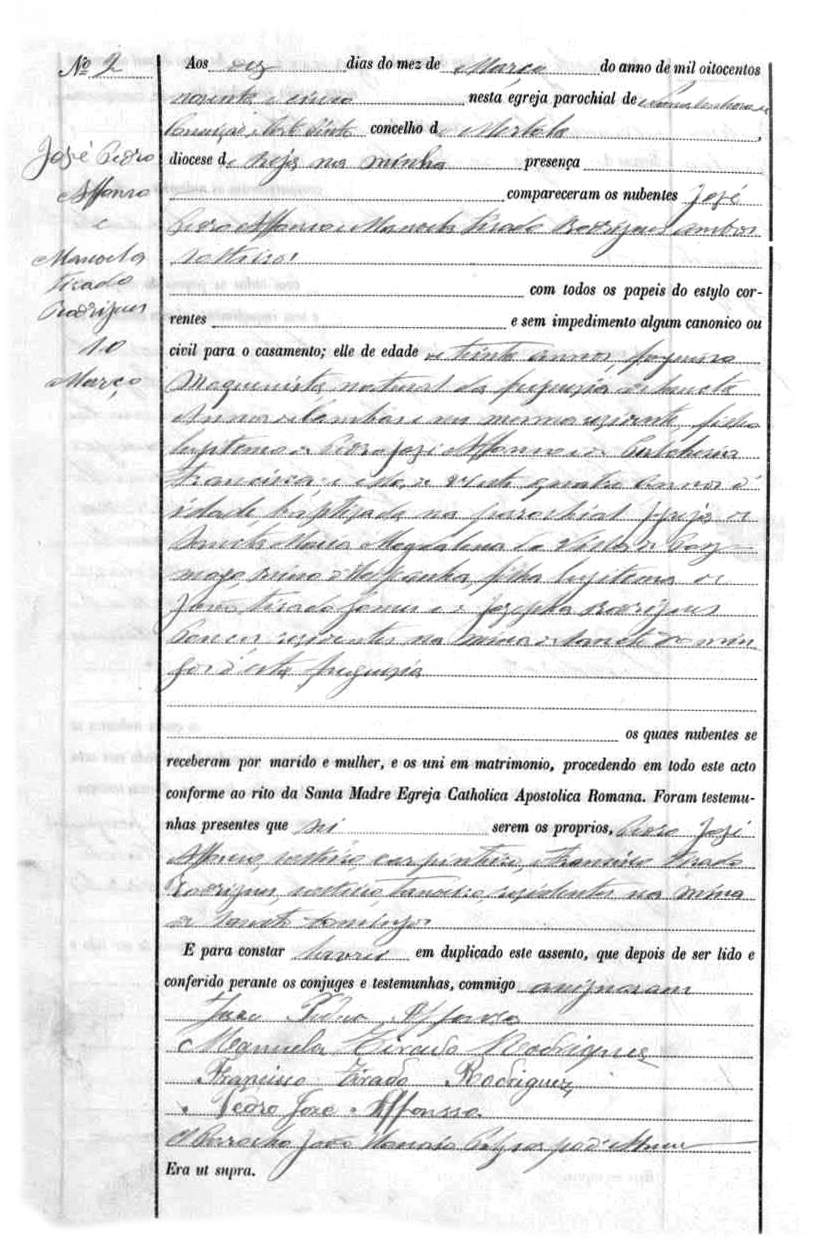 Nº 2
José Pedro
Affonso
e
Manoela
Tirado
Rodrigues
10
Março
Aos dez dias do mez de Março do anno de mil oitocentos
noventa e cinco nesta egreja parochial de
concelho de Mertola,
diocese de Beja na minha presença
compareceram os nubentes José
Pedro Affonso e Manoela Tirado Rodrigues ambos
solteiros
com todos os papeis do estylo cor-
rentes e sem impedimento algum canonico ou
civil para o casamento; elle de edade de trinta annos
Maquinista natural da freguesia de Sancta
Anna de Cambas e na mesma residente, filho
legitimo de Pedro José Affonso e de
Francisca e ella de vinte quatro annos d'
idade baptizada na parochial Igreja de
Sancta Maria Magdalena da
reino d'Hespanha, filha legitima de
Tirado e de Josepha Rodrigues
residentes na mina de Sancto Domin
gos d'esta freguesia
os quaes nubentes se
receberam por marido e mulher, e os uni em matrimonio, procedendo em todo este acto
conforme ao rito da Santa Madre Egreja Catholica Apostolica Romana. Foram testemu-
nhas presentes que sei serem os proprios, Pedro José
Affonso, solteiro, carpinteiro, e Francisco Tirado
Rodrigues, solteiro, tanoeiro, residentes na mina
de Sancto Domingos
E para constar lavrei em duplicado este assento, que depois de ser lido e
conferido perante os conjuges e testemunhas, commigo assignaram
Jose Pedro Affonso
Manuela Tirado Rodriguez
Francisco Tirado Rodriguez
Pedro José Affonsso
O Parrocho João
Era ut supra.